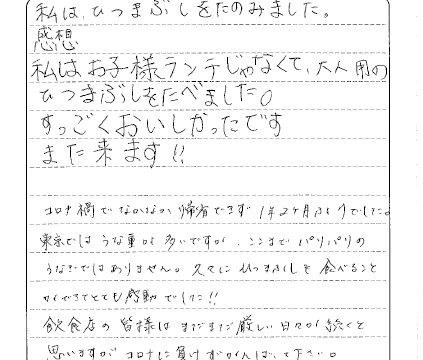 私は、ひつまぶしをたのみました。
感想
私はお子様ランチじゃなくて、大人用の
ひつまぶしをたべました。
すっごくおいしかったです
また来ます!!
コロナ禍でなかなか帰省できず1年2ヶ月ぶりでした。
東京ではうな重が多いですが、ここまでパリパリの
うなぎではありません。久々にひつまぶしを食べること
ができてとても感動でした!!
飲食店の皆様はまだまだ厳しい日々が続くと
思いますがコロナに負けずがんばって下さい。